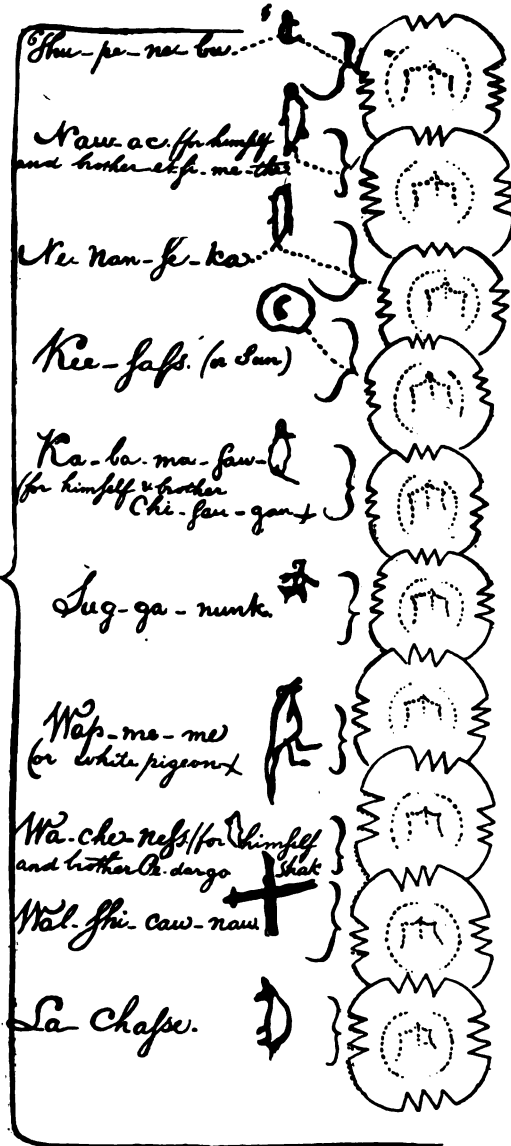 Thu-pe-ne-bu
Naw-ac (for himself
and brother et-si-me-the
Ne-nan-se-ka
Kee-sass. (or Sun)
Ka-ba-ma-saw-
(for himself & brother
Chi-sau-gan+
Sug-ga-nunk.
Wap-me-me
(or white pigeon+
Wa-che-ness (for himself
and brother Pe-dar-go shak
Wal-shi-caw-naw
La Chasse.